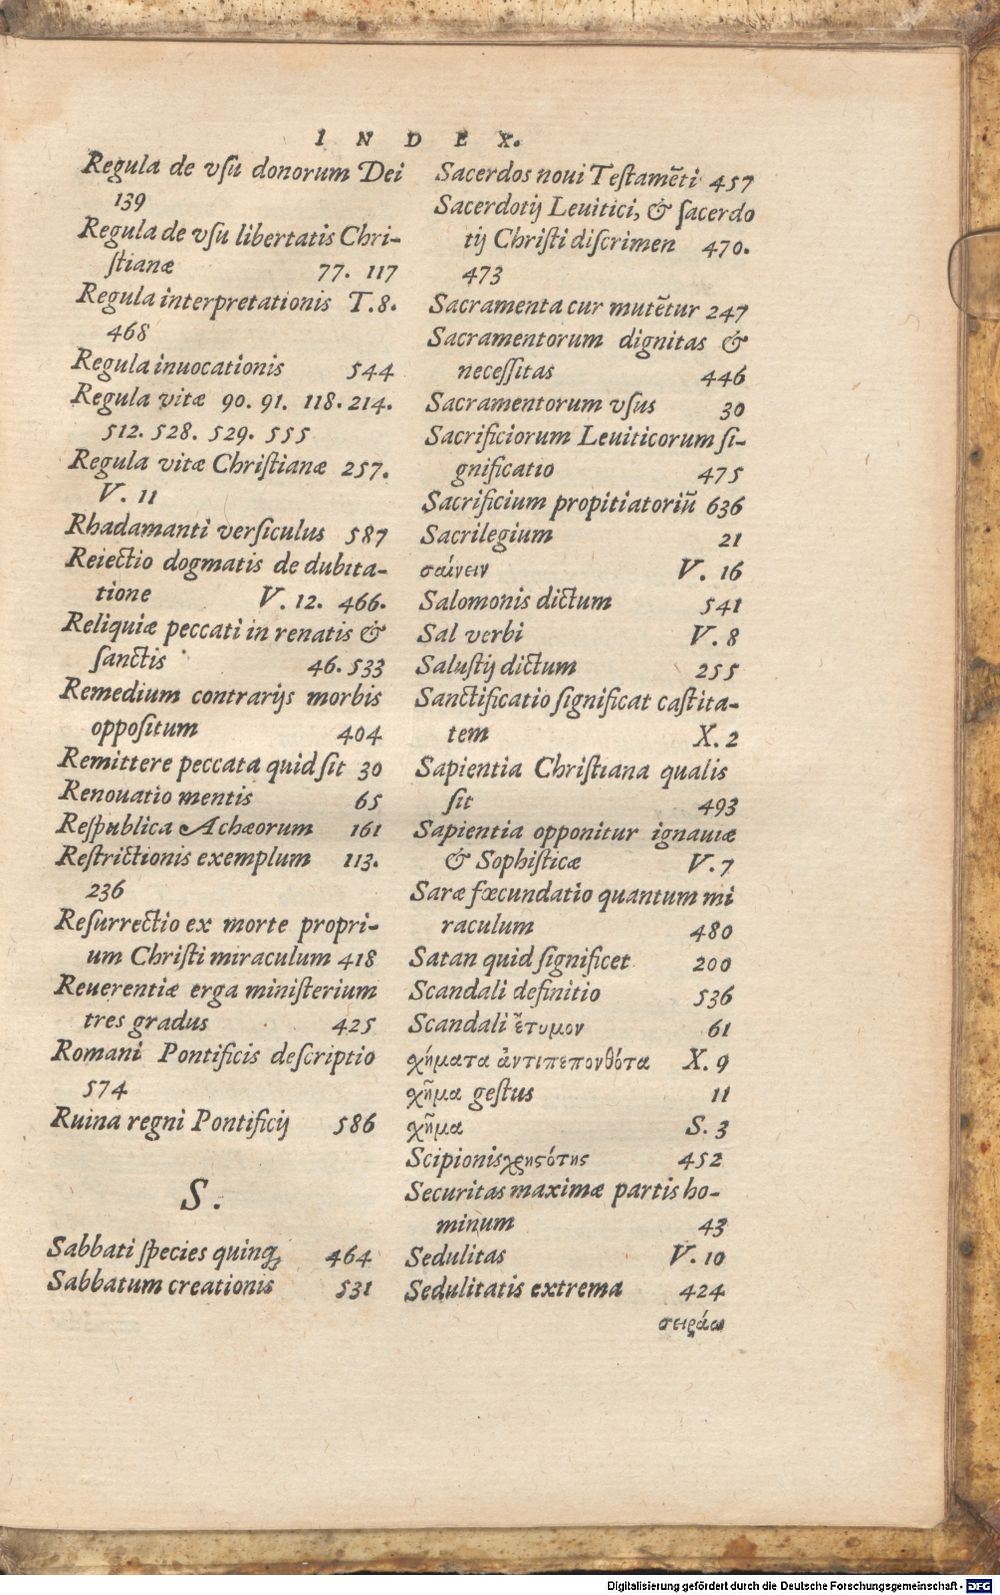 INDEX.
Regula de vsu donorum Dei
139
Regula de vsu libertatis Chri-
stianæ 77. 117
Regula interpretationis T.8.
468
Regula inuocationis 544
Regula vitæ 90. 91. 118. 214.
512. 528. 529. 555
Regula vitæ Christianæ 257.
V. 11
Rhadamanti versiculus 587
Reiectio dogmatis de dubita-
tione V. 12. 466.
Reliquiæ peccati in renatis &
sanctis 46. 533
Remedium contrarijs morbis
oppositum 404
Remittere peccata quid sit 30
Renouatio mentis 65
Respublica Achæorum 161
Restrictionis exemplum 113.
236
Resurrectio ex morte propri-
um Christi miraculum 418
Reuerentiæ erga ministerium
tres gradus 425
Romani Pontificis descriptio
574
Ruina regni Pontificij 586
S.
Sabbati species quinq; 464
Sabbatum creationis 531
Sacerdos noui Testamēti 457
Sacerdotij Leuitici, & sacerdo
tij Christi discrimen 470.
473
Sacramenta cur mutētur 247
Sacramentorum dignitas &
necessitas 446
Sacramentorum vsus 30
Sacrificiorum Leuiticorum si-
gnificatio 475
Sacrificium propitiatoriū 636
Sacrilegium 21
σαίνειν V. 16
Salomonis dictum 541
Sal verbi V. 8
Salustij dictum 255
Sanctificatio significat castita-
tem X. 2
Sapientia Christiana qualis
sit 493
Sapientia opponitur ignauiæ
& Sophisticæ V. 7
Saræ fœcundatio quantum mi
raculum 480
Satan quid significet 200
Scandali definitio 536
Scandali ἔτυμον 61
σχήματα ἀντιπεπονθότα X. 9
σχῆμα gestus 11
σχῆμα S. 3
Scipionis χρηστότης 452
Securitas maximæ partis ho-
minum 43
Sedulitas V. 10
Sedulitatis extrema 424
σειράω
Digitalisierung gefördert durch die Deutsche Forschungsgemeinschaft - DFG